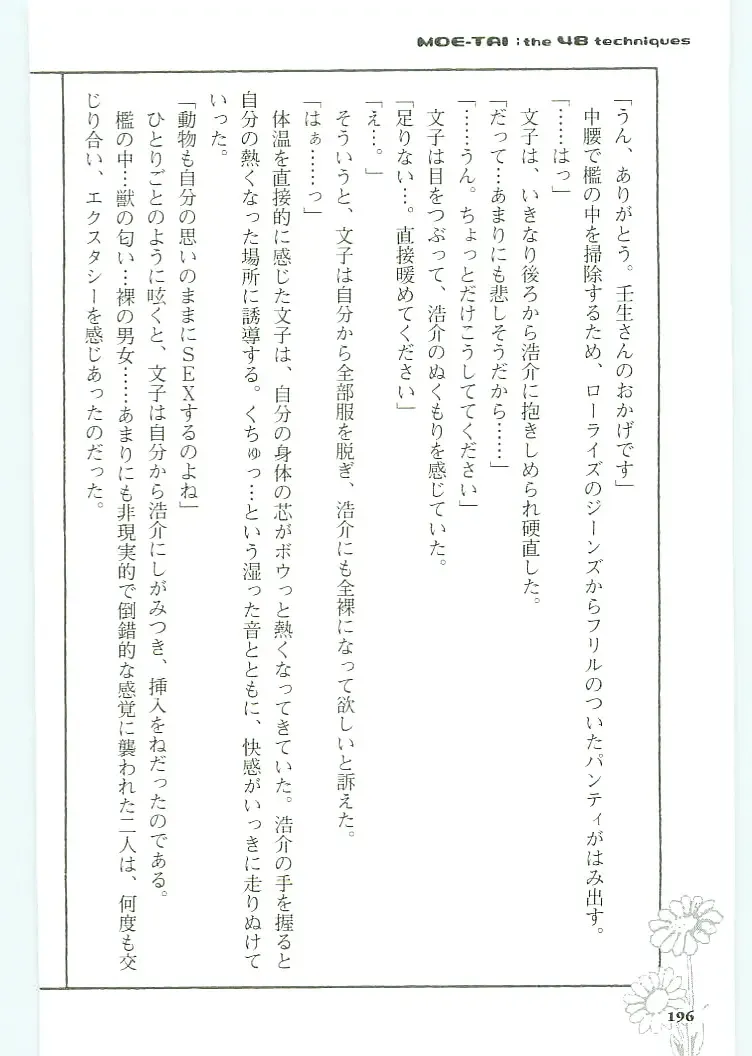 MOE-TAI : the 48 techniques
「うん、ありがとう。壬生さんのおかげです」
中腰で檻の中を掃除するため、ローライズのジーンズからフリルのついたパンティがはみ出す。
「……はっ」
文子は、いきなり後ろから浩介に抱きしめられ硬直した。
「だって…あまりにも悲しそうだから……」
「……うん。ちょっとだけこうしててください」
文子は目をつぶって、浩介のぬくもりを感じていた。
「足りない…。直接暖めてください」
「え…。」
そういうと、文子は自分から全部服を脱ぎ、浩介にも全裸になって欲しいと訴えた。
「はぁ……っ」
体温を直接的に感じた文子は、自分の身体の芯がボウっと熱くなってきていた。浩介の手を握ると
自分の熱くなった場所に誘導する。くちゅっ…という湿った音とともに、快感がいっきに走りぬけて
いった。
「動物も自分の思いのままにＳＥＸするのよね」
ひとりごとのように呟くと、文子は自分から浩介にしがみつき、挿入をねだったのである。
檻の中…獣の匂い…裸の男女……あまりにも非現実的で倒錯的な感覚に襲われた二人は、何度も交
じり合い、エクスタシーを感じあったのだった。
196